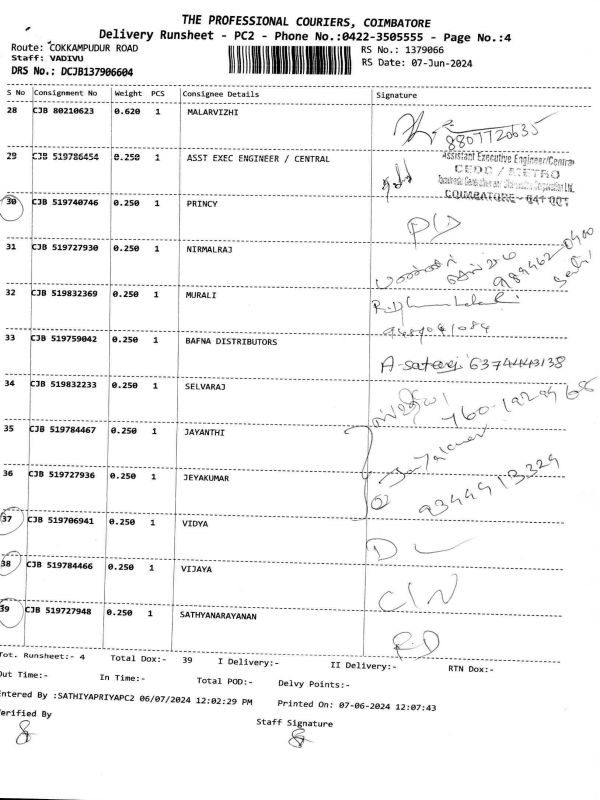 THE PROFESSIONAL COURIERS, COIMBATORE
Delivery Runsheet - PC2 - Phone No.:0422-3505555 - Page No.:4
Route: COKKAMPUDUR ROAD RS No.: 1379066
Staff: VADIVU RS Date: 07-Jun-2024
DRS No.: DCJB137906604
S No Consignment No Weight PCS Consignee Details Signature
28 CJB 80210623 0.620 1 MALARVIZHI
8807720635
29 CJB 519786454 0.250 1 ASST EXEC ENGINEER / CENTRAL
Assistant Executive Engineer/Central
CEDC / METRO
COIMBATORE - 641 001
30 CJB 519740746 0.250 1 PRINCY
31 CJB 519727930 0.250 1 NIRMALRAJ
32 CJB 519832369 0.250 1 MURALI
33 CJB 519759042 0.250 1 BAFNA DISTRIBUTORS
6374443138
34 CJB 519832233 0.250 1 SELVARAJ
35 CJB 519784467 0.250 1 JAYANTHI
36 CJB 519727936 0.250 1 JEYAKUMAR
9344913329
37 CJB 519706941 0.250 1 VIDYA
DL
38 CJB 519784466 0.250 1 VIJAYA
39 CJB 519727948 0.250 1 SATHYANARAYANAN
RD
Tot. Runsheet:- 4 Total Dox:- 39 I Delivery:- II Delivery:- RTN Dox:-
Out Time:- In Time:- Total POD:- Delvy Points:-
Entered By :SATHIYAPRIYAPC2 06/07/2024 12:02:29 PM Printed On: 07-06-2024 12:07:43
Verified By Staff Signature